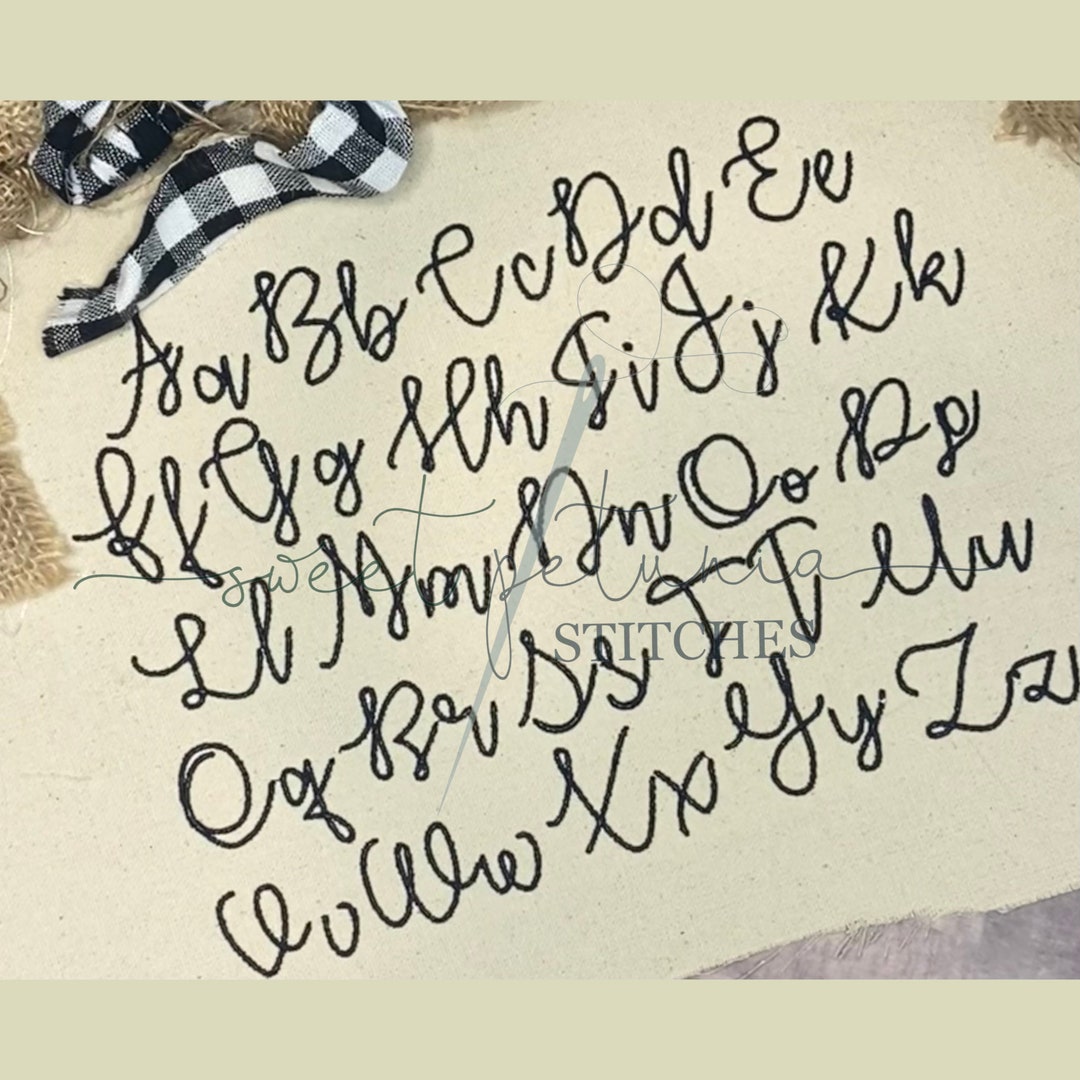 Aa Bb Cc Dd Ee
Ff Gg Hh Ii Jj Kk
Ll Mm Nn Oo Pp
Qq Rr Ss Tt Uu
Vv Ww Xx Yy Zz
sweet petunia
STITCHES